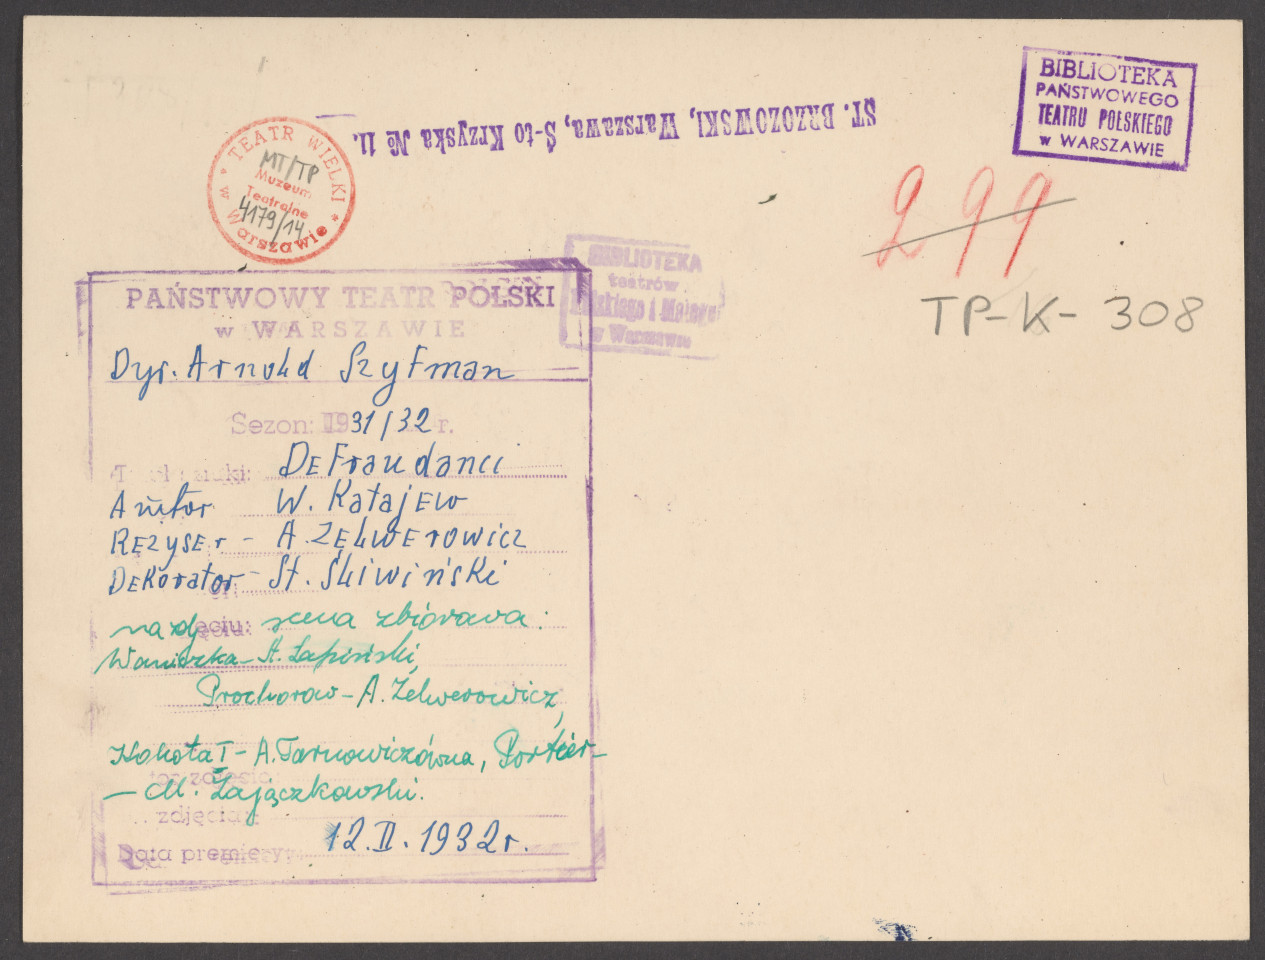 BIBLIOTEKA
PAŃSTWOWEGO
TEATRU POLSKIEGO
w WARSZAWIE
ST. BRZOZOWSKI, Warszawa, Ś-to Krzyska № 11.
TEATR WIELKI
w Warszawie
MT/TP
Muzeum
Teatralne
4179/14
299
TP-K-308
BIBLIOTEKA
teatrów
i
w Warszawie
PAŃSTWOWY TEATR POLSKI
w WARSZAWIE
Dyr. Arnold Szyfman
Sezon: 1931/32 r.
Defraudanci
Autor W. Katajew
Reżyser - A. Zelwerowicz
Dekorator - St. Śliwiński
na zdjęciu: scena zbiorowa:
Waniczka - St. Łapiński,
Prochorow - A. Zelwerowicz,
Kokota I - A. Tarnowiczówna, Portier -
- M. Łajączkowski.
zdjęcia:
12. II. 1932 r.
Data premiery: